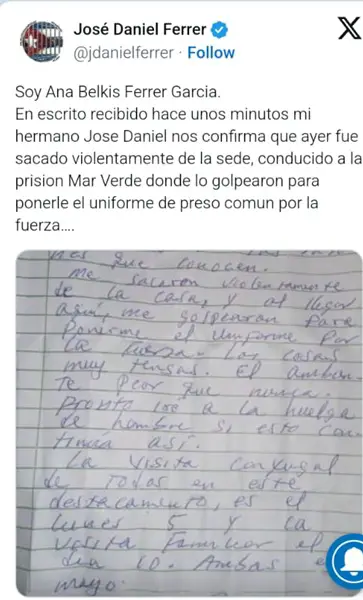 José Daniel Ferrer
@jdanielferrer · Follow
Soy Ana Belkis Ferrer Garcia.
En escrito recibido hace unos minutos mi
hermano Jose Daniel nos confirma que ayer fue
sacado violentamente de la sede, conducido a la
prision Mar Verde donde lo golpearon para
ponerle el uniforme de preso comun por la
fuerza....
que conocen.
me sacaron violentamente
de la casa, y al llegar
aquí, me golpearon para
ponerme el uniforme por
la fuerza. Las cosas
muy tensas. El ambien-
te peor que nunca.
Pronto iré a la huelga
de hambre si esto con-
tinúa así.
La visita conyugal
de todos en este
destacamento, es el
lunes 5 y la
visita familiar el
día 10. Ambas
mayo.